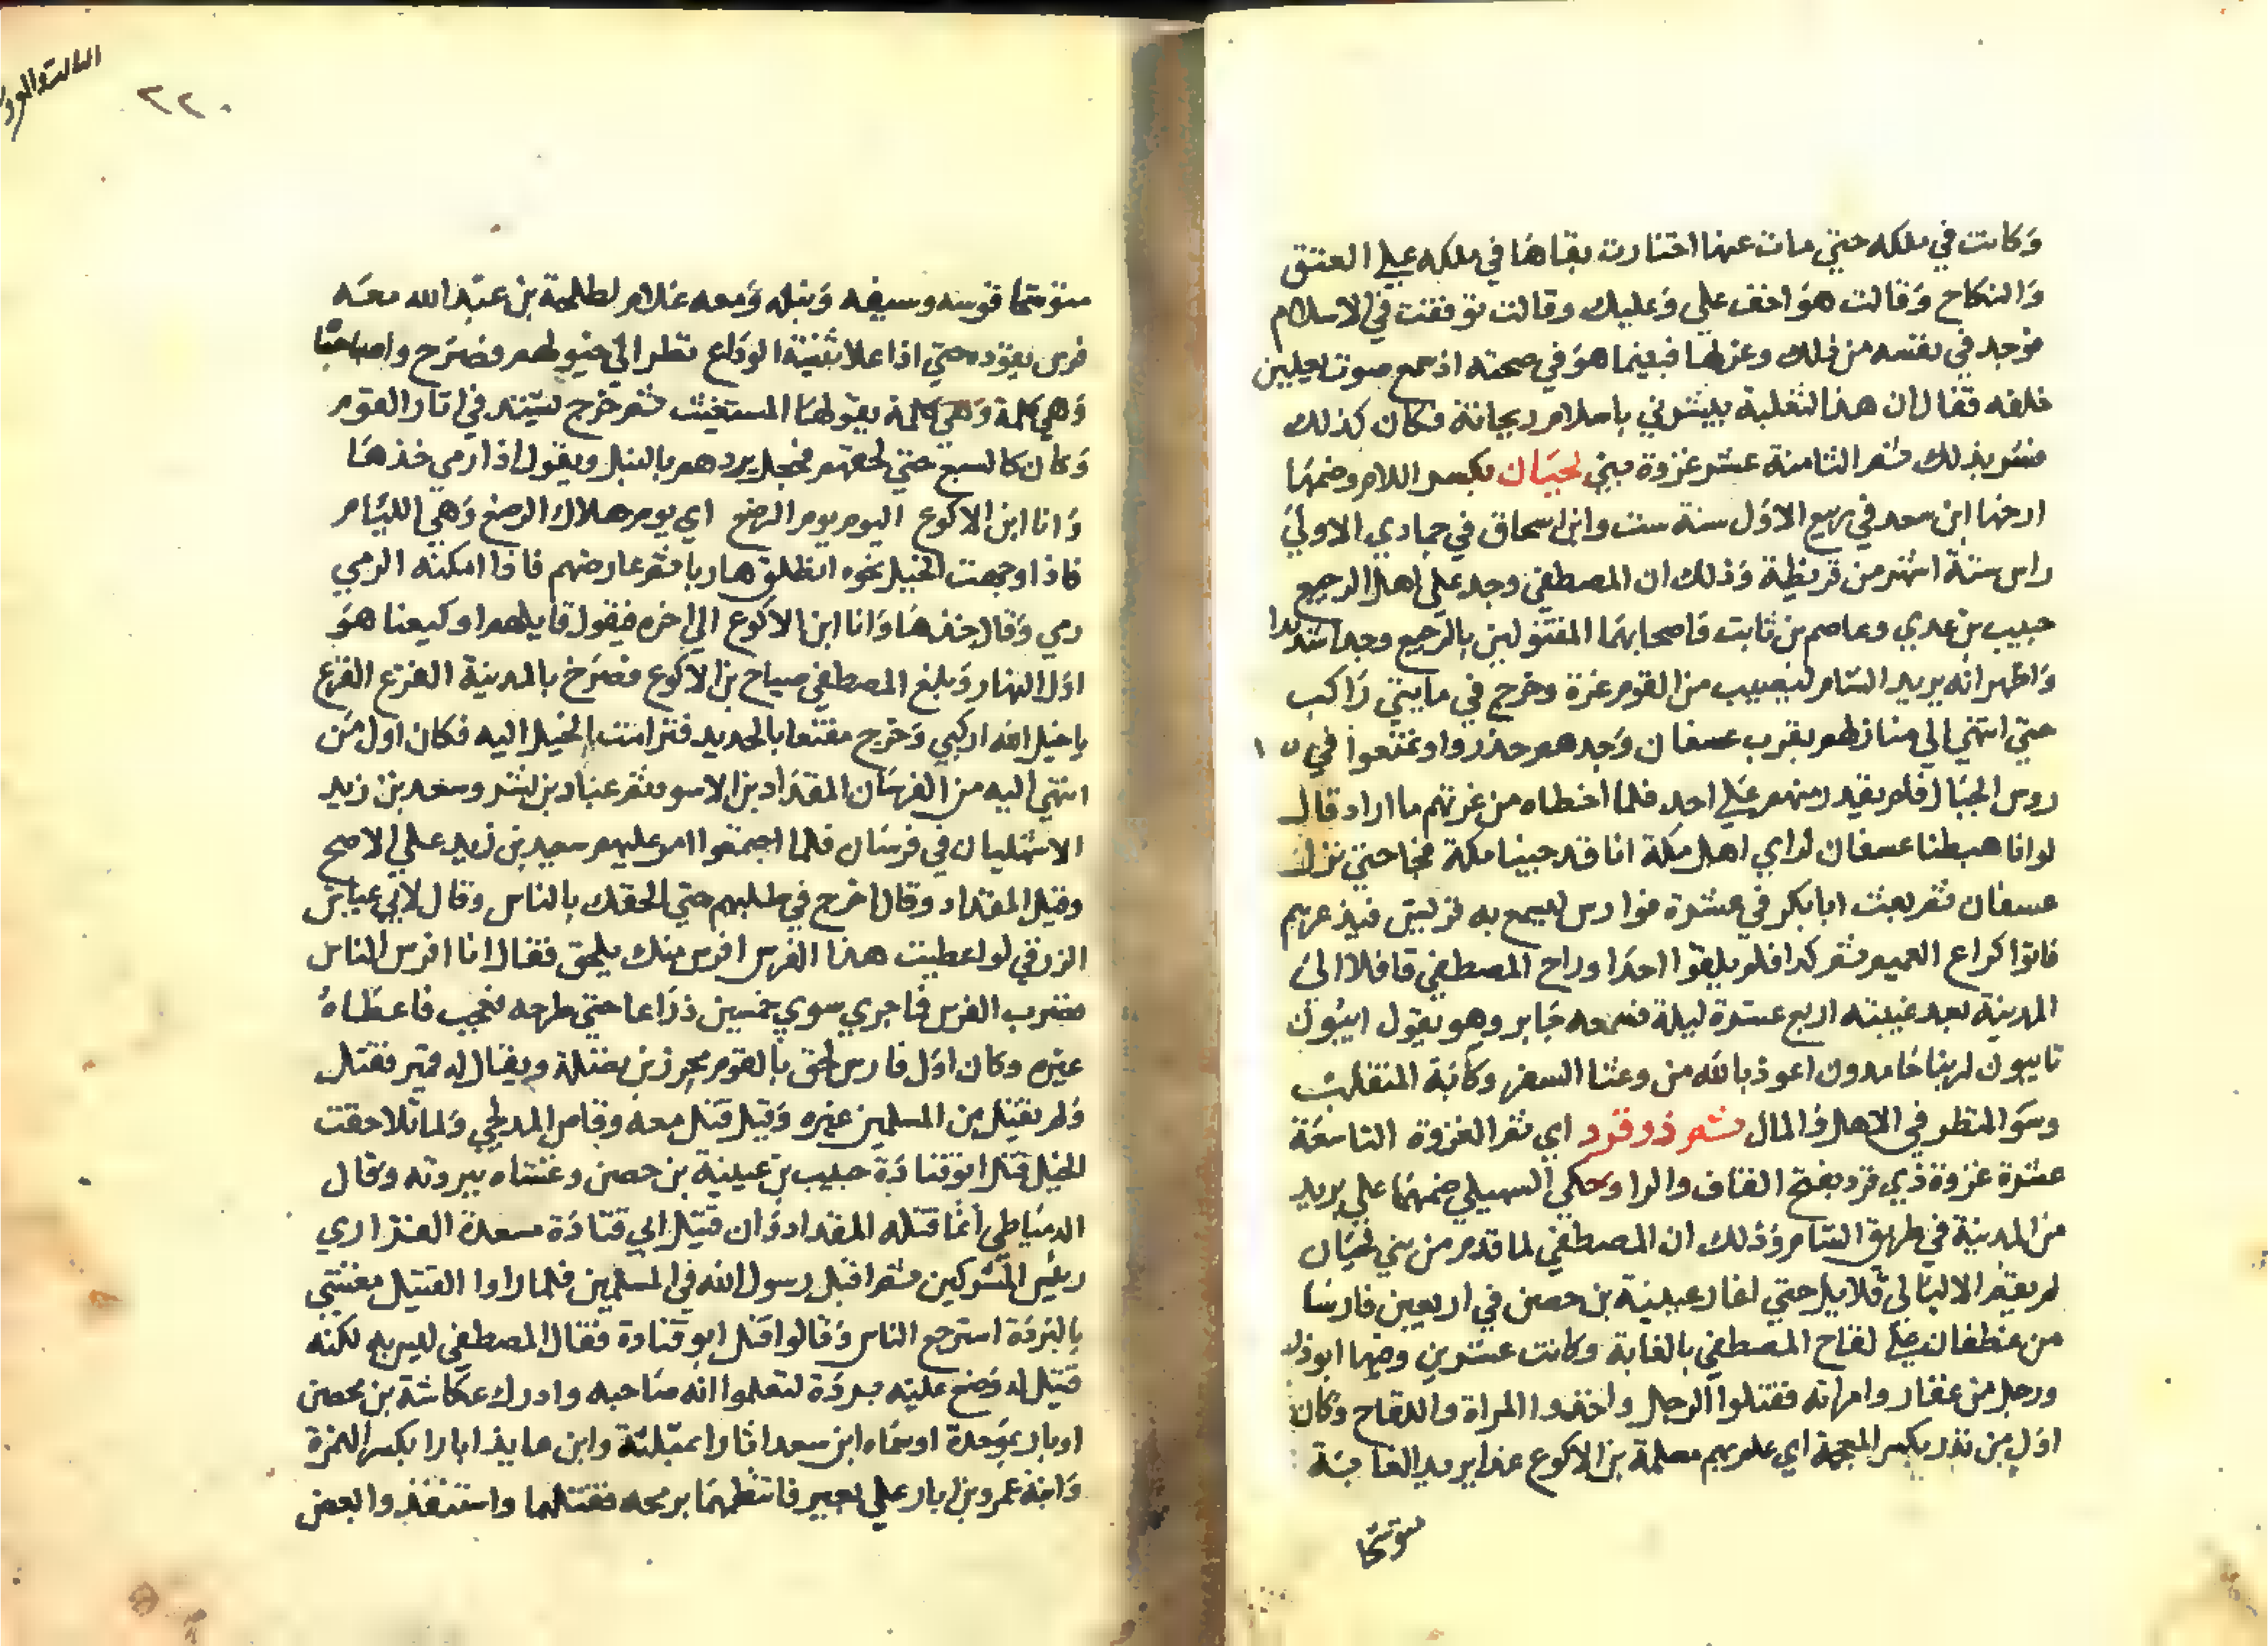 وكانت في ملكه حتي مات عنها اختارت بقاها في ملكه علي العتق
والنكاح وقالت هو اخف علي وعليك وقالت توقفت في الاسلام
فوجد في نفسه من ذلك وعزلها فبينما هو في صحبه اذ سمع صوت نعلين
خلفه فقال ان هذا لثعلبة يبشرني باسلام ريحانة فكان كذلك
فسر بذلك ثم الثامنة عشر غزوة بني لحيان بكسر اللام وضمها
ارخها ابن سعد في ربيع الاول سنة ست وابن اسحاق في جمادي الاولي
راس ستة اشهر من قريظة وذلك ان المصطفي وجد علي اهل الرجيع
خبيب بن عدي وعاصم بن ثابت واصحابهما المقتولين بالرجيع وجدا شديدا
واظهر انه يريد الشام ليصيب من القوم غرة وخرج في مايتي راكب
حتي انتهي الي منازلهم بقرب عسفان وجدهم حذروا وتمنعوا في
روس الجبال فلم يقدر منهم علي احد فلما اخطاه من غرتهم ما اراد قال
لو انا هبطنا عسفان لراي اهل مكة انا قد جينا مكة فجا حتي نزل
عسفان ثم بعث ابا بكر في عشرة فوارس ليسمع به قريش فيذعرهم
فاتوا كراع الغميم ثم كرا فلم يلقوا احدا وراح المصطفي قافلا الي
المدينة بعد غيبته اربع عشرة ليلة فسمعه جابر وهو يقول ايبون
تايبون لربنا حامدون اعوذ بالله من وعثا السفر وكابة المنقلب
وسو المنظر في الاهل والمال ثم ذو قرد اي ثم الغزوة التاسعة
عشرة غزوة ذي قرد بفتح القاف والرا وحكي السهيلي ضمهما علي بريد
من المدينة في طريق الشام وذلك ان المصطفي لما قدم من بني لحيان
لم يقم الا ليالي قلايل حتي اغار عيينة بن حصن في اربعين فارسا
من غطفان علي لقاح المصطفي بالغابة وكانت عشرين وفيها ابو ذر
ورجل من غفار وامراته فقتلوا الرجل واخذوا المراة واللقاح وكان
اول من نذر بكسر المعجمة اي علم بهم سلمة بن الاكوع غدا يريد الغابة
متوشحا
٢٢٠
متوشحا قوسه وسيفه ونبله ومعه غلام لطلحة بن عبد الله معه
فرس يقوده حتي اذا علا ثنية الوداع نظر الي خيولهم فصرخ واصباحا
وهي كلمة وهي كلمة يقولها المستغيث ثم خرج يشتد في اثار القوم
وكان كالسبع حتي لحقهم فجعل يردهم بالنبل ويقول اذا رمي خذها
وانا ابن الاكوع اليوم يوم الرضع اي يوم هلاك الرضع وهي الليام
فاذا وجهت الخيل نحوه انطلق هاربا ثم عارضهم فاذا امكنه الرمي
رمي وقال خذها وانا ابن الاكوع الي اخره فيقول قايلهم اوكيعنا هو
اول النهار وبلغ المصطفي صياح بن الاكوع فصرخ بالمدينة الفزع الفزع
يا خيل الله اركبي وخرج مقنعا بالحديد فترامت الخيل اليه فكان اول من
انتهي اليه من الفرسان المقداد بن الاسود ثم عباد بن بشر وسعد بن زيد
الاشهليان في فرسان فلما اجتمعوا امر عليهم سعيد بن زيد علي الاصح
وقيل المقداد وقال اخرج في طلبهم حتي الحقك بالناس وقال لابي عياش
الزرقي لو اعطيت هذا الفرس افرس منك يلحق فقال انا افرس الناس
فضرب الفرس فما جري سوي خمسين ذراعا حتي طرحه فعجب فاعطاه
غيره وكان اول فارس لحق بالقوم محرز بن نضلة ويقال له قمير فقتل
ولم يقتل من المسلمين غيره وقيل قتل معه وقاص المدلجي ولما تلاحقت
الخيل قتل ابو قتادة حبيب بن عيينة بن حصن وغشاه ببردته وقال
الدمياطي انما قتله المقداد وان قتيل ابي قتادة مسعدة الفزاري
رئيس المشركين ثم اقبل رسول الله في المسلمين فلما راوا القتيل مغشي
بالبردة استرجع الناس وقالوا قتل ابو قتادة فقال المصطفي ليس به لكنه
قتيل له وضع عليه بردة لتعلموا انه صاحبه وادرك عكاشة بن محصن
اوبار بموحدة وسماه ابن سعد اثارا بمثلثة وابن عايذ ابارا بكسر الهمزة
وابنه عمرو بن ابار علي بعير فانتظمهما برمحه فقتلهما واستنقذوا بعض